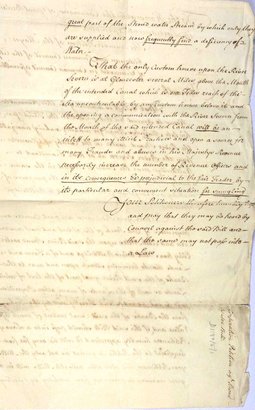 great part of the Stroud water Stream by which only they
are supplied and now frequently find a deficiency of
Water.
That the only Custom house upon the River
Severn is at Gloucester several Miles above the Mouth
of the intended Canal which is one Mile reach of the
sea uncontroulable by any Custom house below it and
the opening a communication with the River Severn from
the Mouth of the said intended Canal will be an
inlett to an and open a source for
many Frauds and abuses in his Majestys Revenue
necessarily increase the number of Revenue Officers and
in its consequences be prejudicial to the Fair Trader by
its particular and convenient situation for smugling
Your Petitioners therefore humbly
and pray that they may be heard by
Counsel against the said Bill and
that the same may not pass into
a Law
Petition agt Stroud
Water Bill